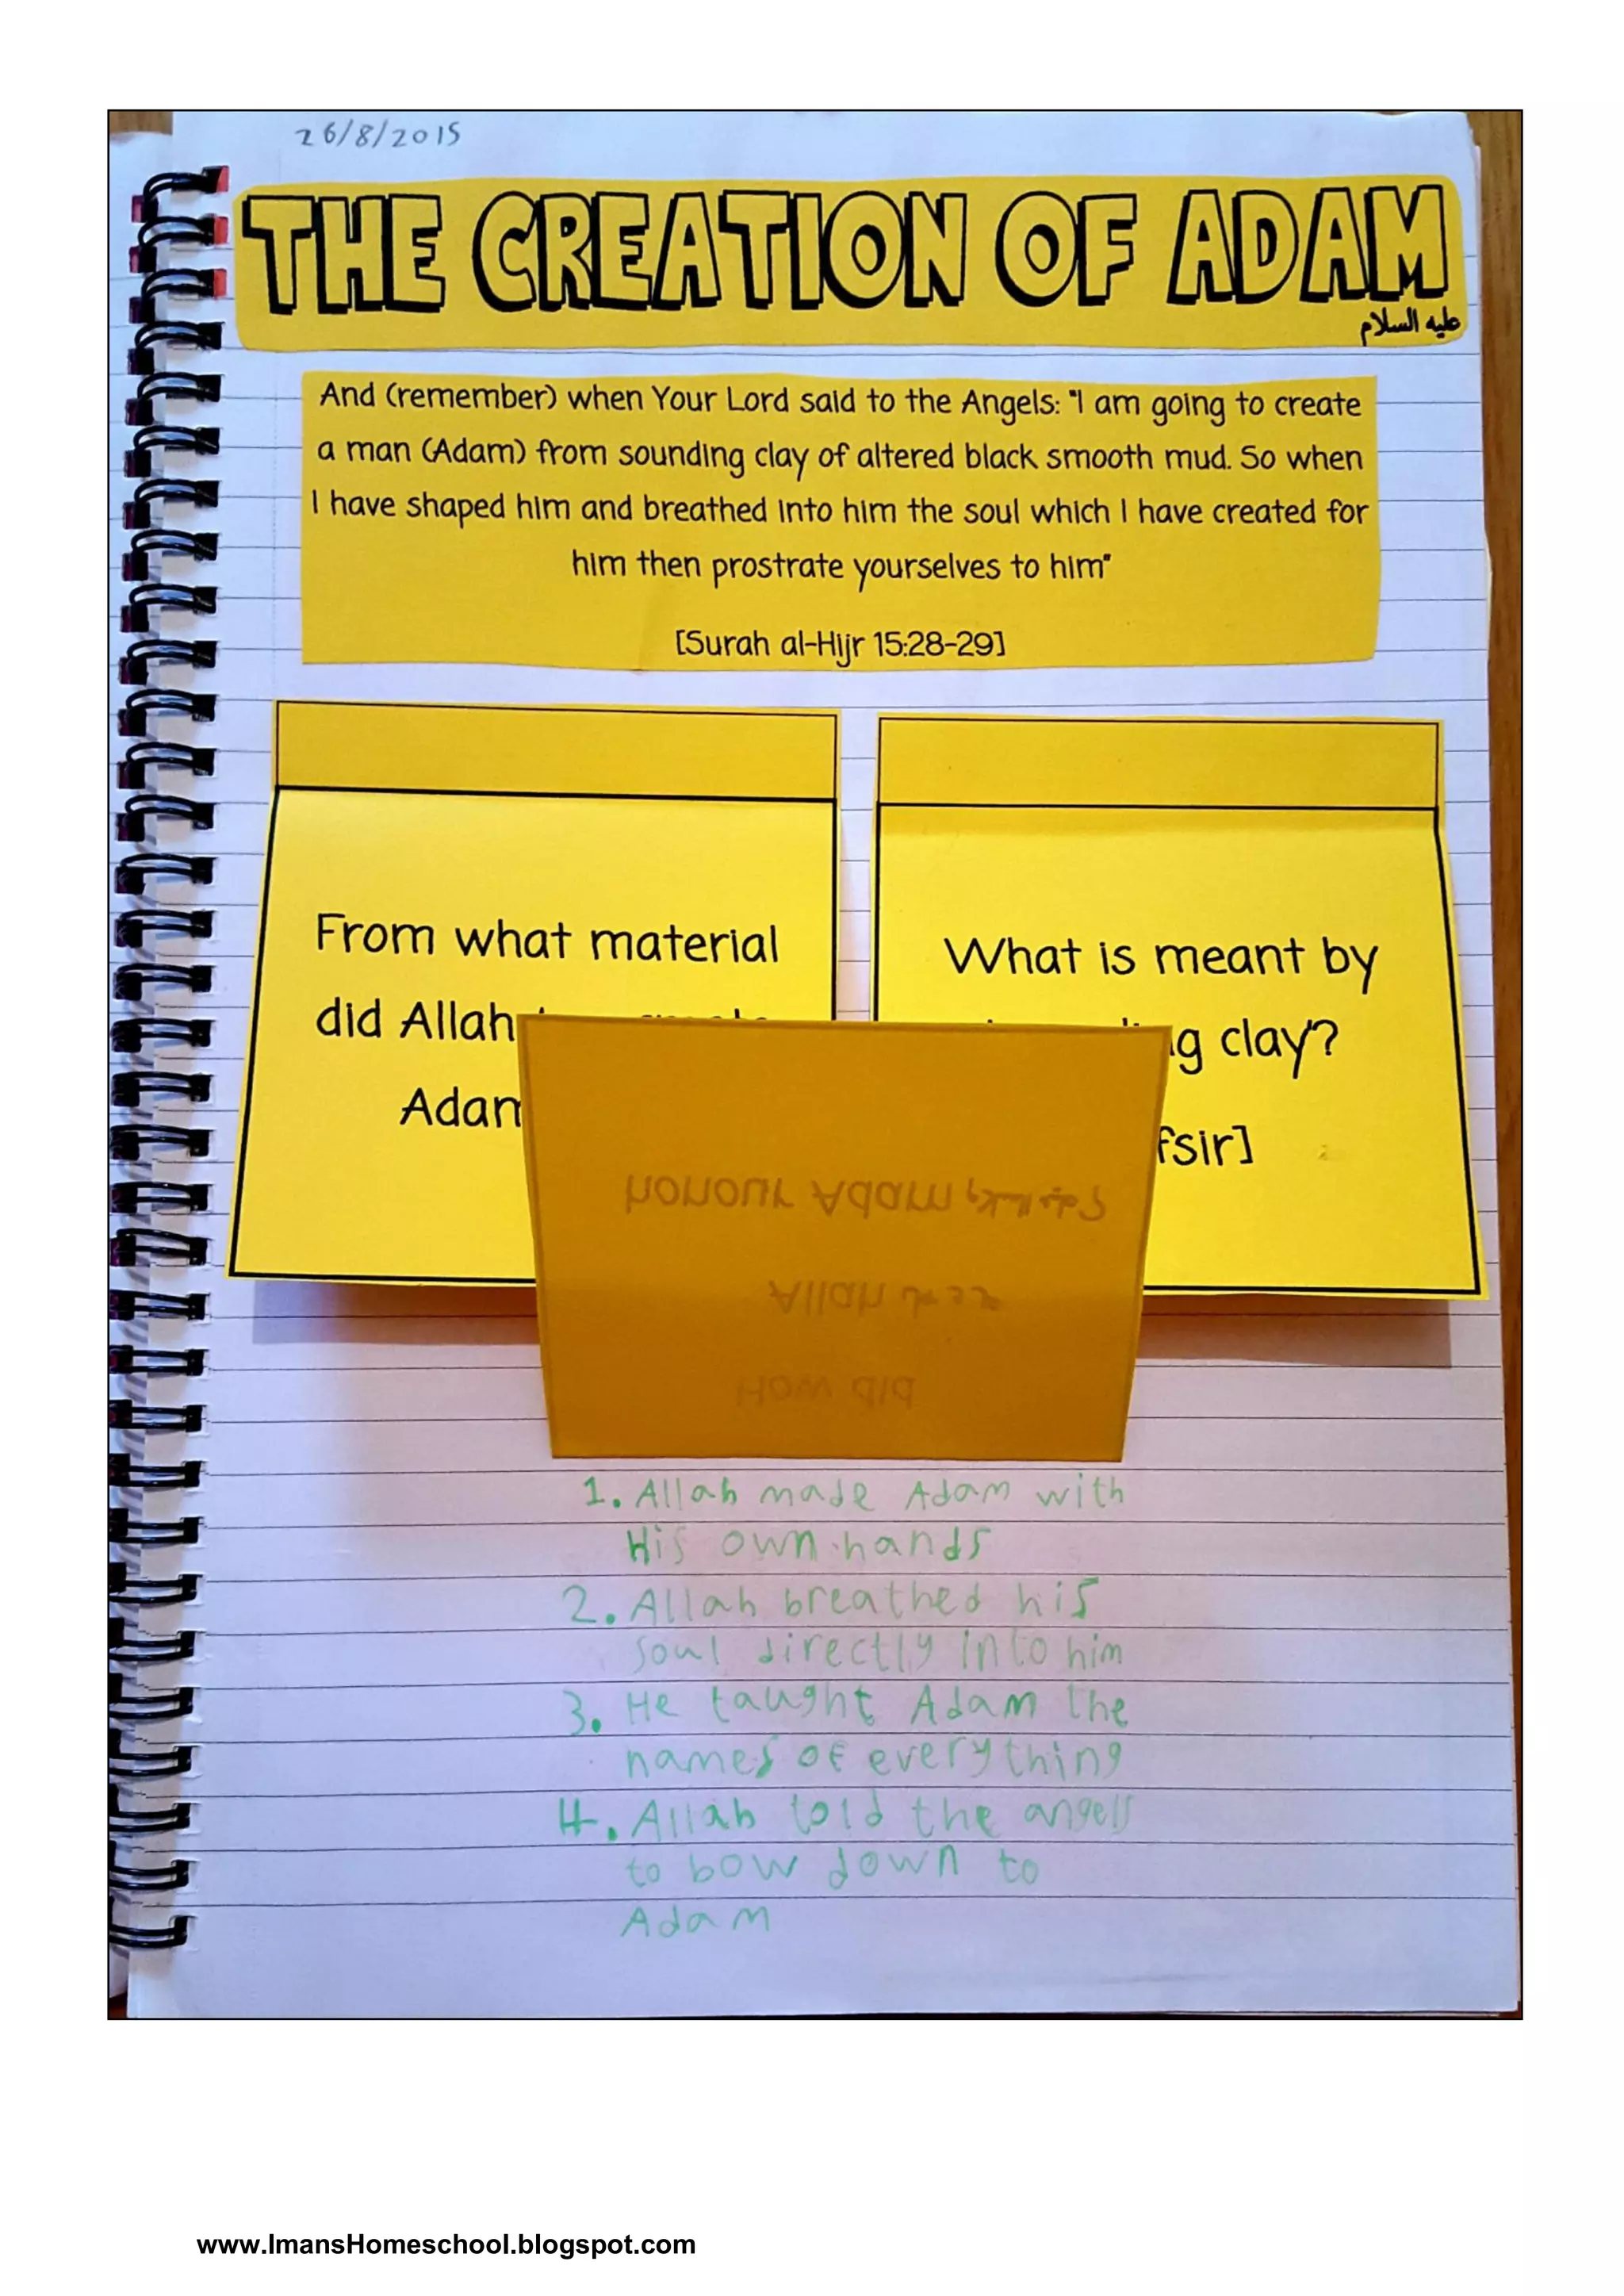 26/8/2015
THE CREATION OF ADAM
عليه السلام
And (remember) when Your Lord said to the Angels: "I am going to create
a man (Adam) from sounding clay of altered black smooth mud. So when
I have shaped him and breathed into him the soul which I have created for
him then prostrate yourselves to him"
[Surah al-Hijr 15:28-29]
From what material
did Allah
Adam
What is meant by
clay'?
How did
Allah
honour Adam
1. Allah made Adam with
His own hands
2. Allah breathed his
soul directly into him
3. He taught Adam the
names of everything
4. Allah told the angels
to bow down to
Adam
www.ImansHomeschool.blogspot.com